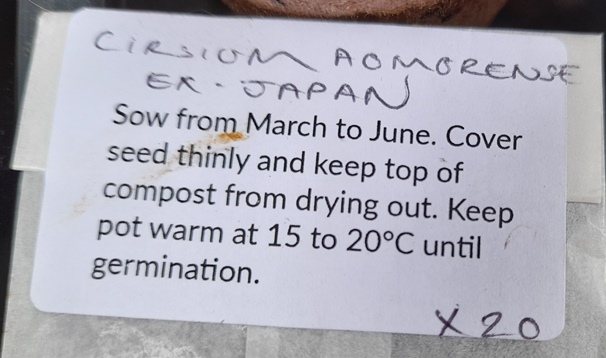 CIRSIUM AOMORENSE
EX - JAPAN
Sow from March to June. Cover
seed thinly and keep top of
compost from drying out. Keep
pot warm at 15 to 20°C until
germination.
X 20